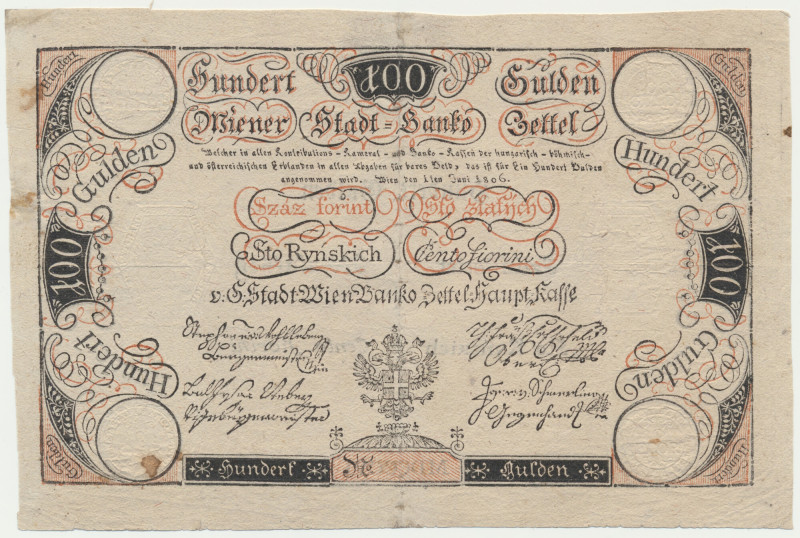 Hundert 100 Gulden
Wiener Stadt-Banko Zettel
Welcher in allen Kontributions-Kameral-und Banko-Kassen der hungarisch-böhmisch-
und österreichischen Erblanden in allen Abgaben für bares Geld, das ist für Ein Hundert Gulden
angenommen wird. Wien den 1ten Juni 1806.
Száz forint Sto zlatych
Sto Rynskich Cento fiorini
v. G. Stadt Wien Banko Zettel Haupt Kasse
Hundert
Gulden
Gulden
Hundert
100
100
Hundert
Gulden
Gulden
Hundert
Hundert Gulden